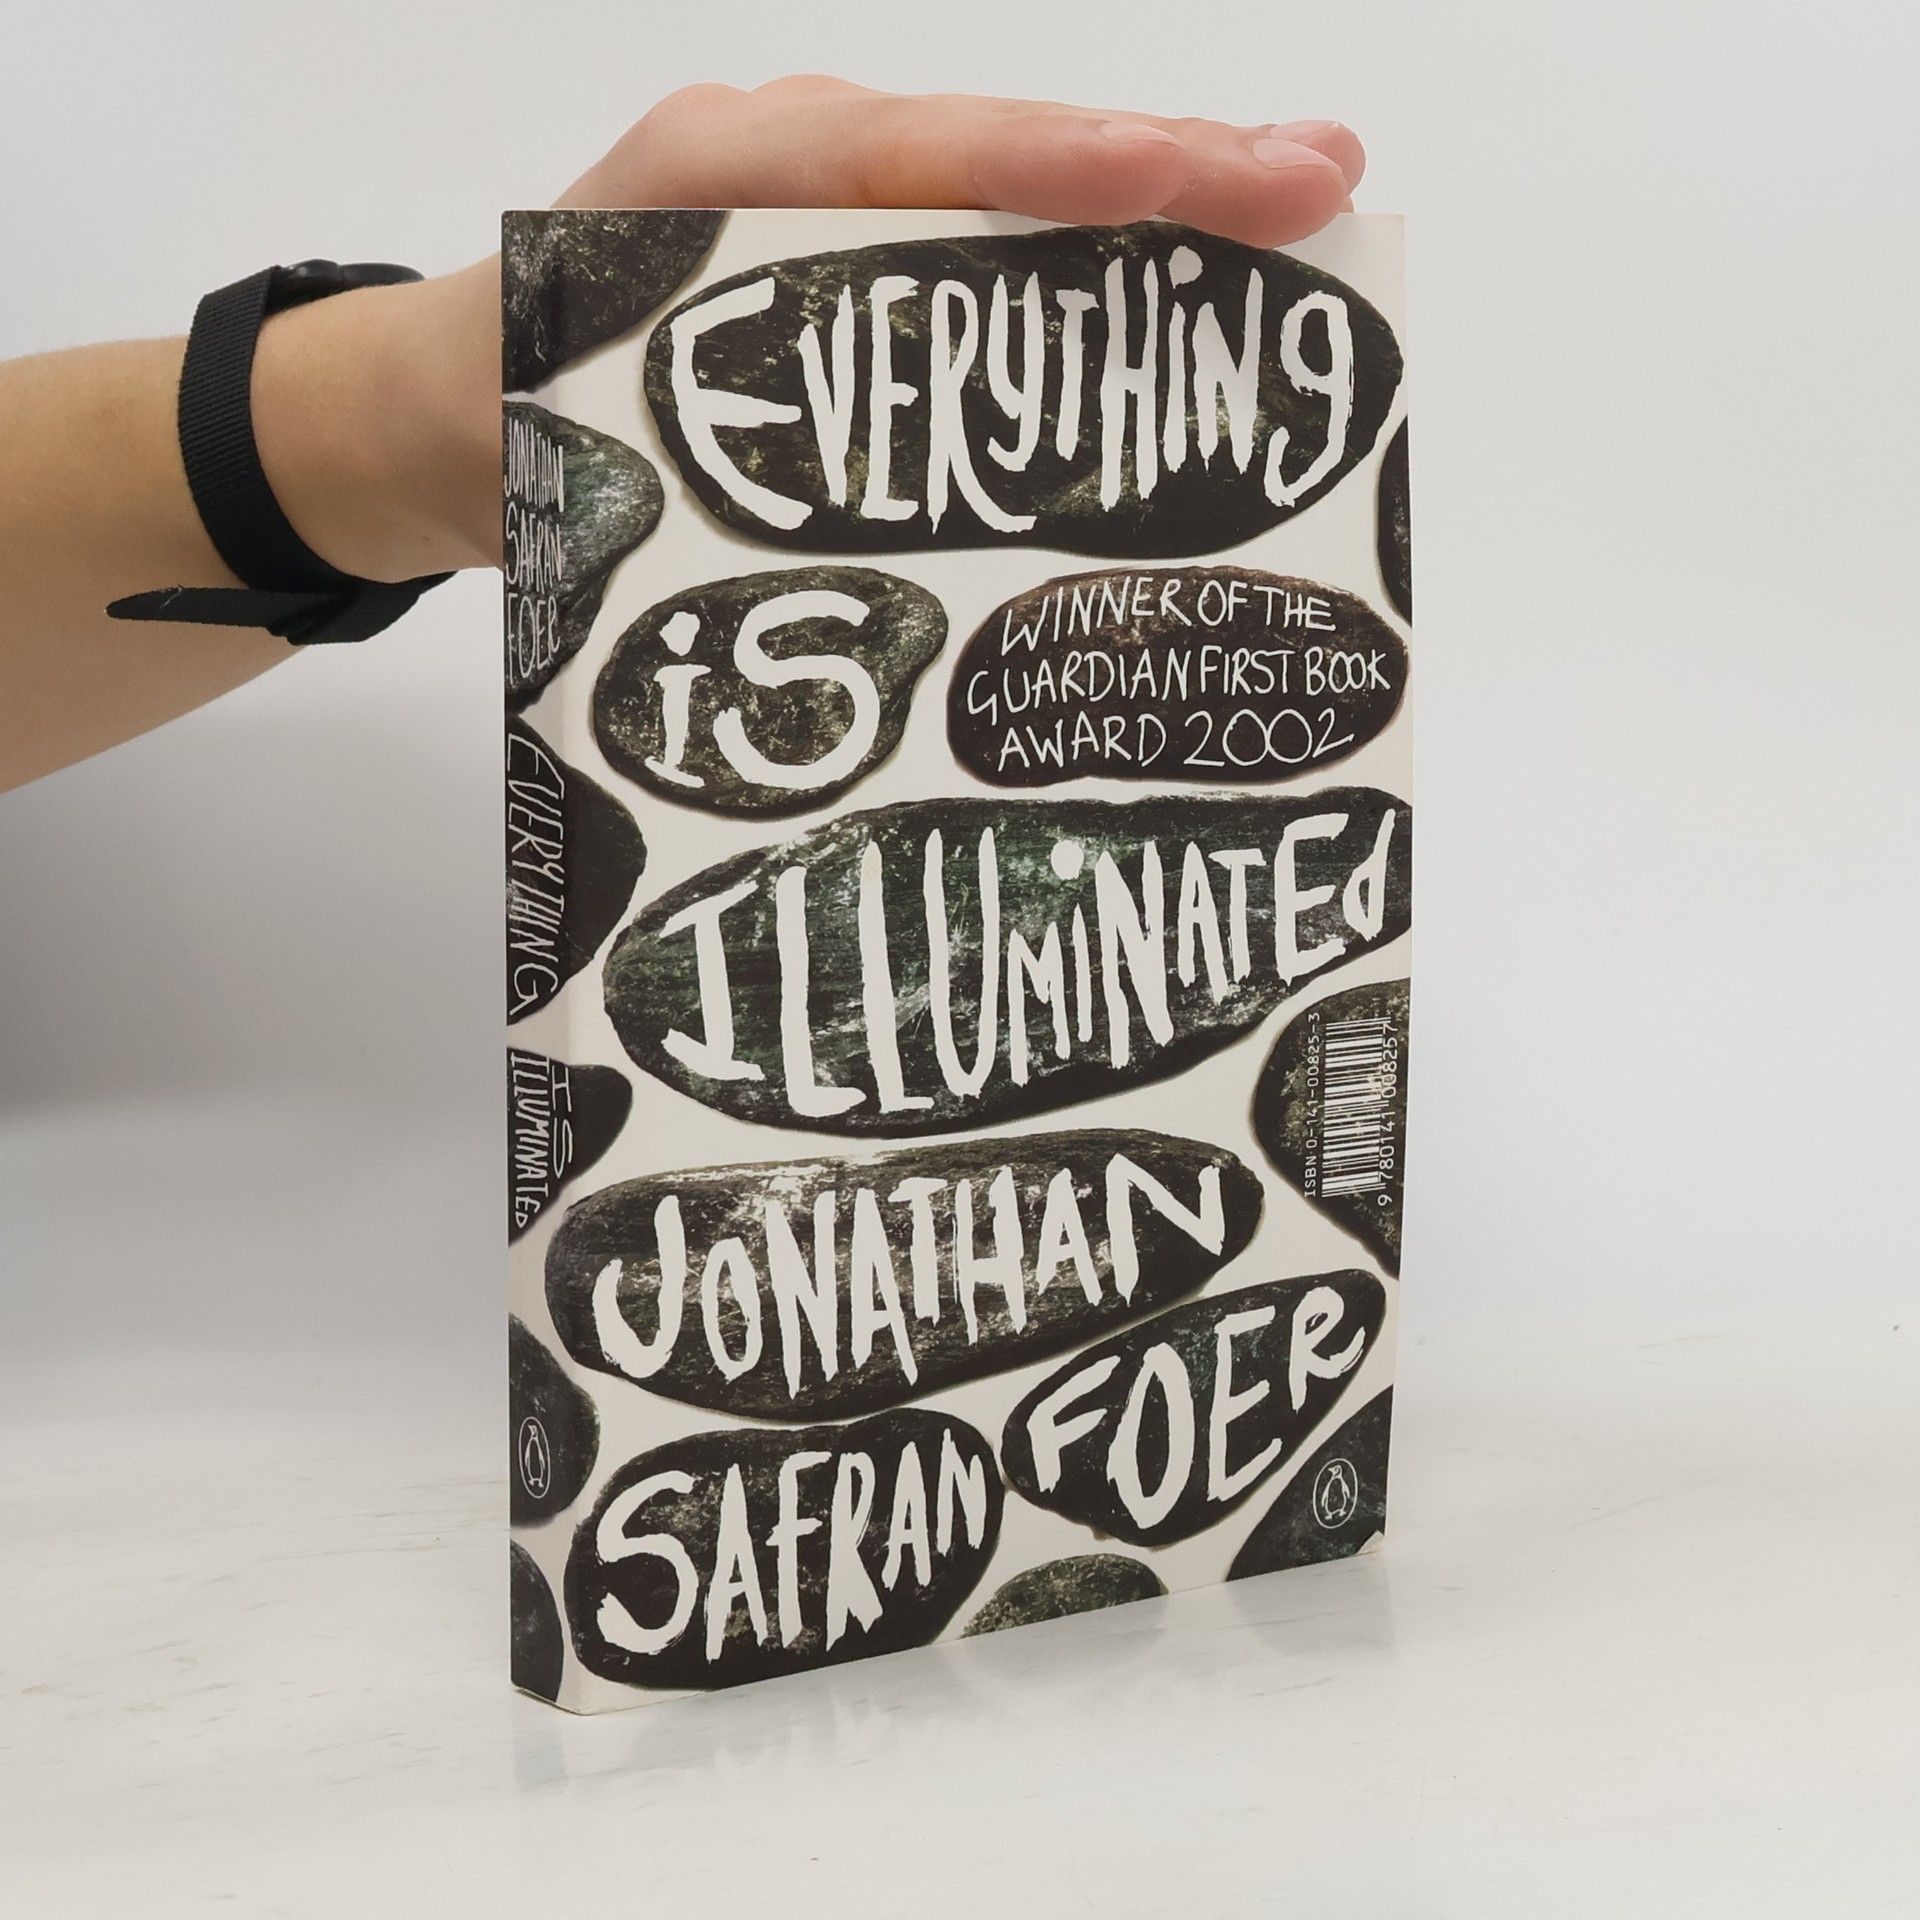 EVERYTHiNg
iS
WINNER OF THE
GUARDIAN FIRST BOOK
AWARD 2002
ILLUMiNATEd
JONATHAN
SAFRAN
FOER
ISBN 0-141-00825-3
9 780141 008257
JONATHAN
SAFRAN
FOER
EVERYTHING
IS
ILLUMINATED